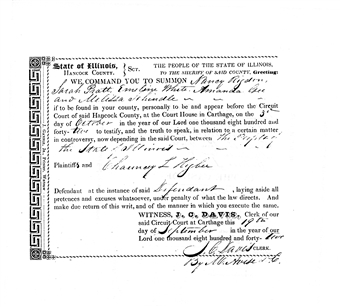 State of Illinois,
HANCOCK COUNTY, } Sct.
THE PEOPLE OF THE STATE OF ILLINOIS,
TO THE SHERIFF OF SAID COUNTY, Greeting:
WE COMMAND YOU TO SUMMON Nancy Rigdon,
Sarah Pratt, Emeline White, Amanda
and Melissa Shindle
if to be found in your county, personally to be and appear before the Circuit
Court of said Hancock County, at the Court House in Carthage, on the 3d
day of October in the year of our Lord one thousand eight hundred and
forty-two to testify, and the truth to speak, in relation to a certain matter
in controversy, now depending in said Court, between The People of
the State of Illinois
Plaintiff and Chauncy L Higbee
Defendant at the instance of said Defendant, laying aside all
pretences and excuses whatsoever, under penalty of what the law directs. And
make due return of this writ, and of the manner in which you execute the same.
WITNESS, J. C. DAVIS, Clerk of our
said Circuit Court at Carthage this 19th
day of September in the year of our
Lord one thousand eight hundred and forty-two
J. C. Davis CLERK.
By M.